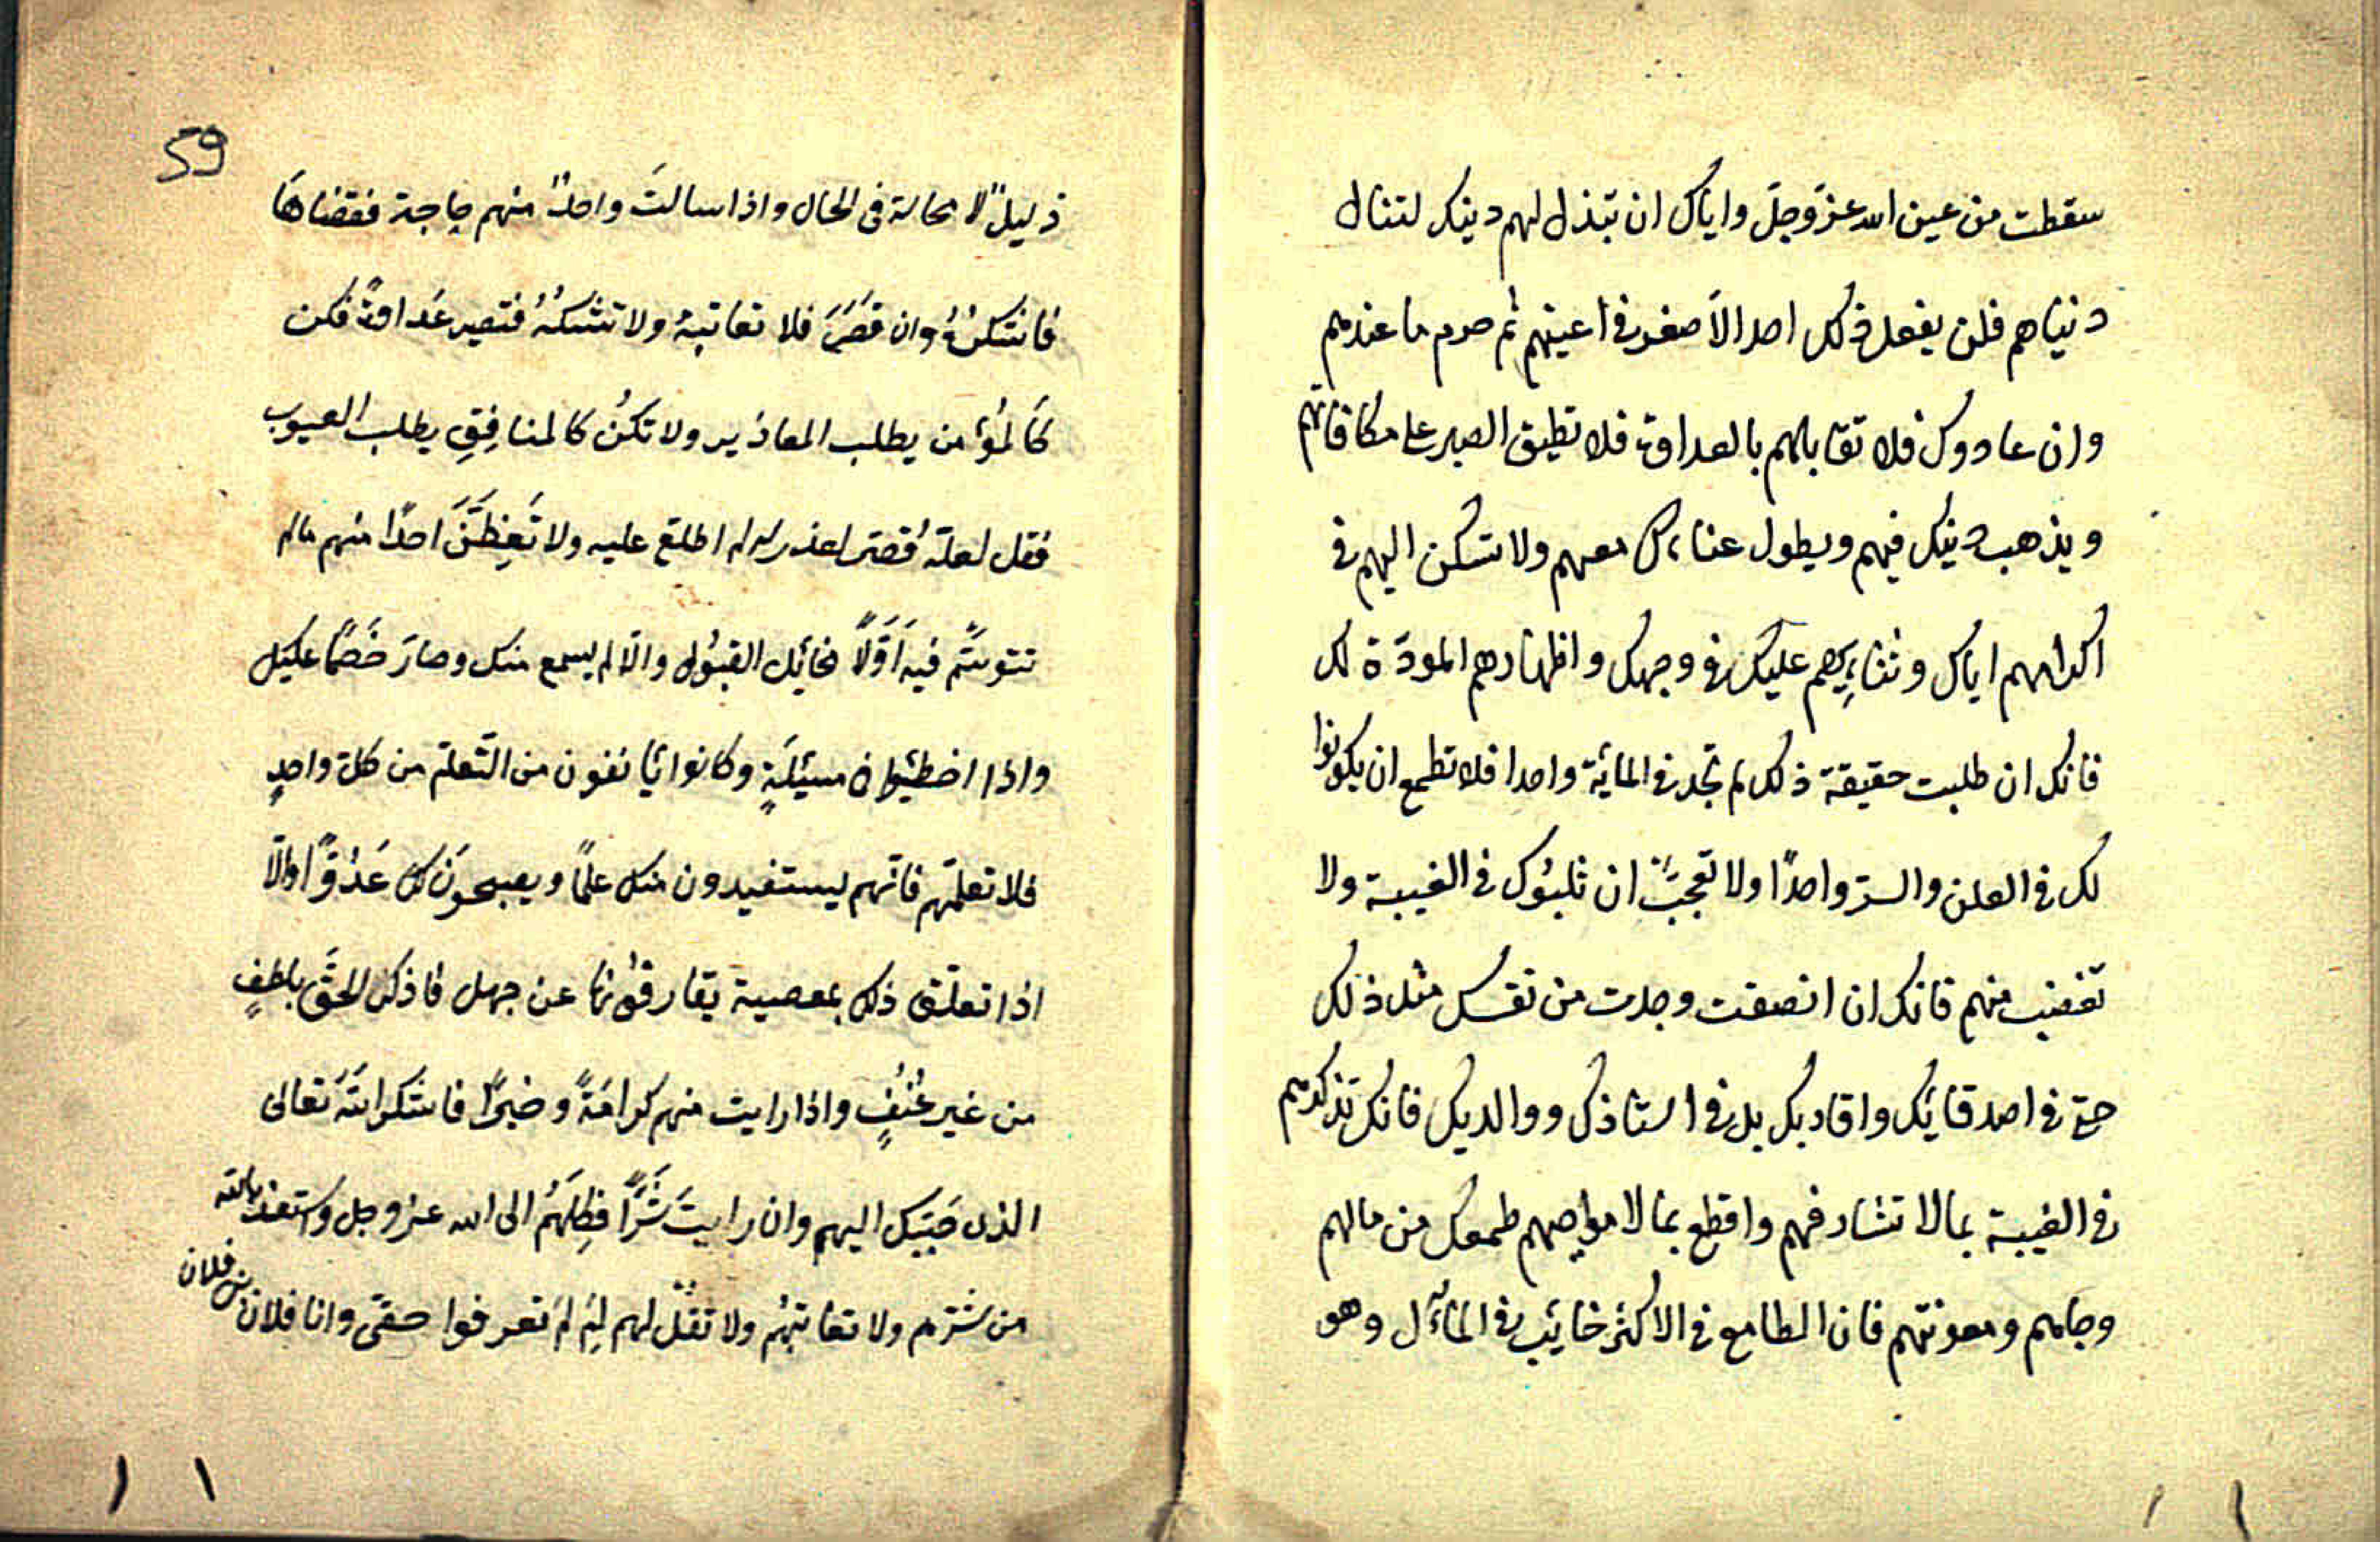 سقطت من عين الله عزّوجلّ واياك ان تبذل لهم دينك لتنال
دنياهم فلن يفعل ذلك احد الاّ صغر في أعينهم ثم حرم ما عندهم
وان عادوك فلا تقابلهم بالعداوة فلا تطيق الصبر على مكافاتهم
ويذهب دينك فيهم ويطول عناءك معهم ولا تسكن اليهم في
اكرامهم اياك وثنايهم عليك في وجهك واظهارهم المودّة لك
فانك ان طلبت حقيقة ذلك لم تجد في المائة واحدا فلا تطمع ان يكونوا
لك في العلن والسرّ واحدًا ولا تعجبّ ان ثلبوك في الغيبة ولا
تغضب منهم فانك ان انصفت وجدت من نفسك مثل ذلك
حتى في اصدقائك واقاربك بل في استاذك ووالديك فانك تذكرهم
في الغيبة بما لا تشافههم واقطع بما لا طمعك من مالهم
وجاههم ومعونتهم فان الطامع في الاكثر خائب في المآل وهو
59
ذليلٌ لا محالة في الحال واذا سالتَ واحدًا منهم حاجة فقضاهَا
فاشكرْهُ وان قصَّرَ فلا تعاتبهُ ولا تشكهُ فتصير عَداوةً فكن
كَالمؤمن يطلب المعاذير ولا تكنُ كالمنافِقِ يطلب العيوب
فقل لعلّه قصّر لعذر له لم اطلع عليه ولا تَعِظَنَّ احدًا منهم مالم
تتوسَّم فيه اَوَّلًا مخائل القبُول والّا لم يسمع منك وصارَ خَصمًا عليك
واذا اخطئوا في مسئلَةٍ وكانوا يأنفون من التّعلّم من كلّ واحدٍ
فلا تعلّمهم فانّهم يستفيدون منك علمًا ويصبحوَن لك عَدُوًّا والّا
اذا تعلّق ذلك بمعصية يقارفونها عن جهل فاذكر الحَقّ بلطفٍ
من غير عُنُفٍ واذا رايت منهم كرامَةً وخيرًا فاشكر اللهَ تَعالى
الذى حَبَّبَك اليهم وان رايتَ شَرًّا فكِلهُم الى الله عزوجل واستعذ بالله
من شرّهم ولا تعاتبهُم ولا تقُل لهم لِمَ لمَ تعرفوا حقّى وانا فلان بن فلان